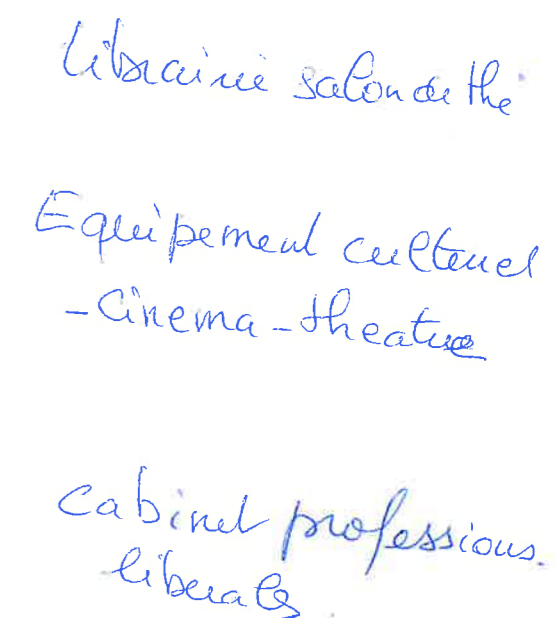 Librairie salon de thé
Equipement culturel
- Cinema - theatre
Cabinet professions.
liberales